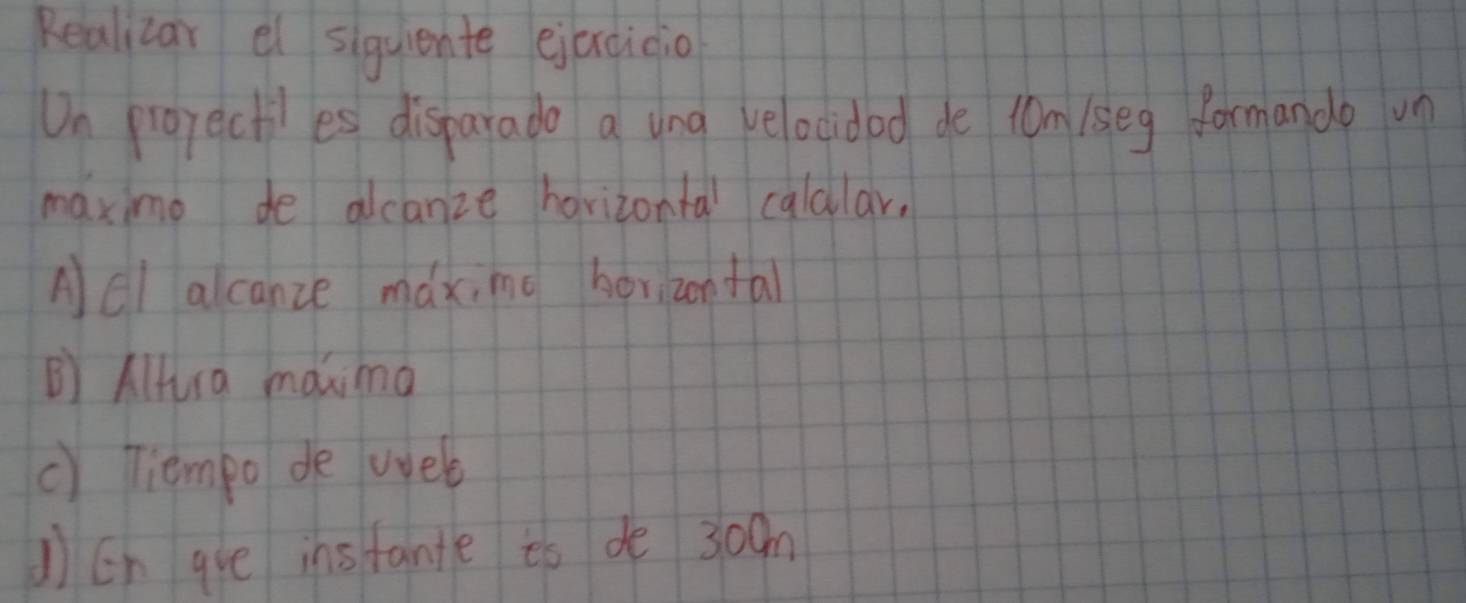 Realizar el siguiente ejercicio
Un proyectil es disparado a una velocidad de 10m/seg formando un
máximo de alcanze horizontal calcular.
A) El alcanze máximo horizontal
B) Altura máxima
c) Tiempo de vuelo
d) En que instante es de 300m